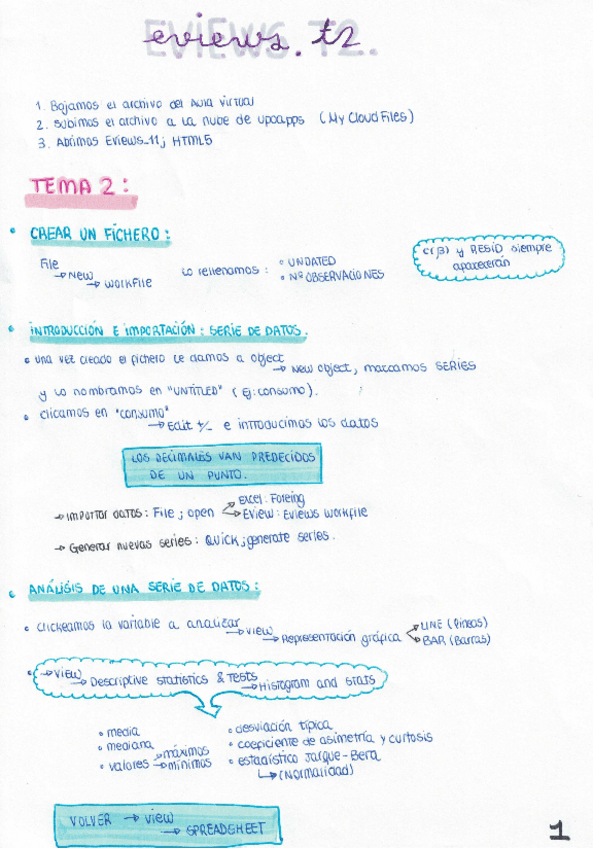 eviews. t2
EVIEWS T2.
1. Bajamos el archivo del Aula Virtual
2. Subimos el archivo a la nube de upoapps (My Cloud Files)
3. Abrimos Eviews_11; HTML5
TEMA 2:
• CREAR UN FICHERO:
File
→ New
→ WORKFILE
Lo rellenamos:
• UNDATED
• Nº OBSERVACIONES
C(β) y RESID siempre
aparecerán
• INTRODUCCIÓN E IMPORTACIÓN: SERIE DE DATOS.
• una vez creado el fichero le damos a object
→ New object, marcamos SERIES
y lo nombramos en "UNTITLED" (Ej: consumo).
• clicamos en "consumo"
→ Edit +/- e introducimos los datos
LOS DECIMALES VAN PREDECIDOS
DE UN PUNTO.
→ Importar datos: File; open
Excel: Foreing
EView: Eviews workfile
→ Generar nuevas series: Quick; generate series.
• ANÁLISIS DE UNA SERIE DE DATOS:
• clickeamos la variable a analizar
→ view
→ Representación gráfica
LINE (líneas)
BAR (Barras)
• → View
→ Descriptive statistics & Tests
→ Histogram and stats
• media
• mediana
• valores
→ máximos
→ mínimos
• desviación típica
• coeficiente de asimetría y curtosis
• estadístico Jarque-Bera
↳ (Normalidad)
VOLVER → view
→ SPREADSHEET
1